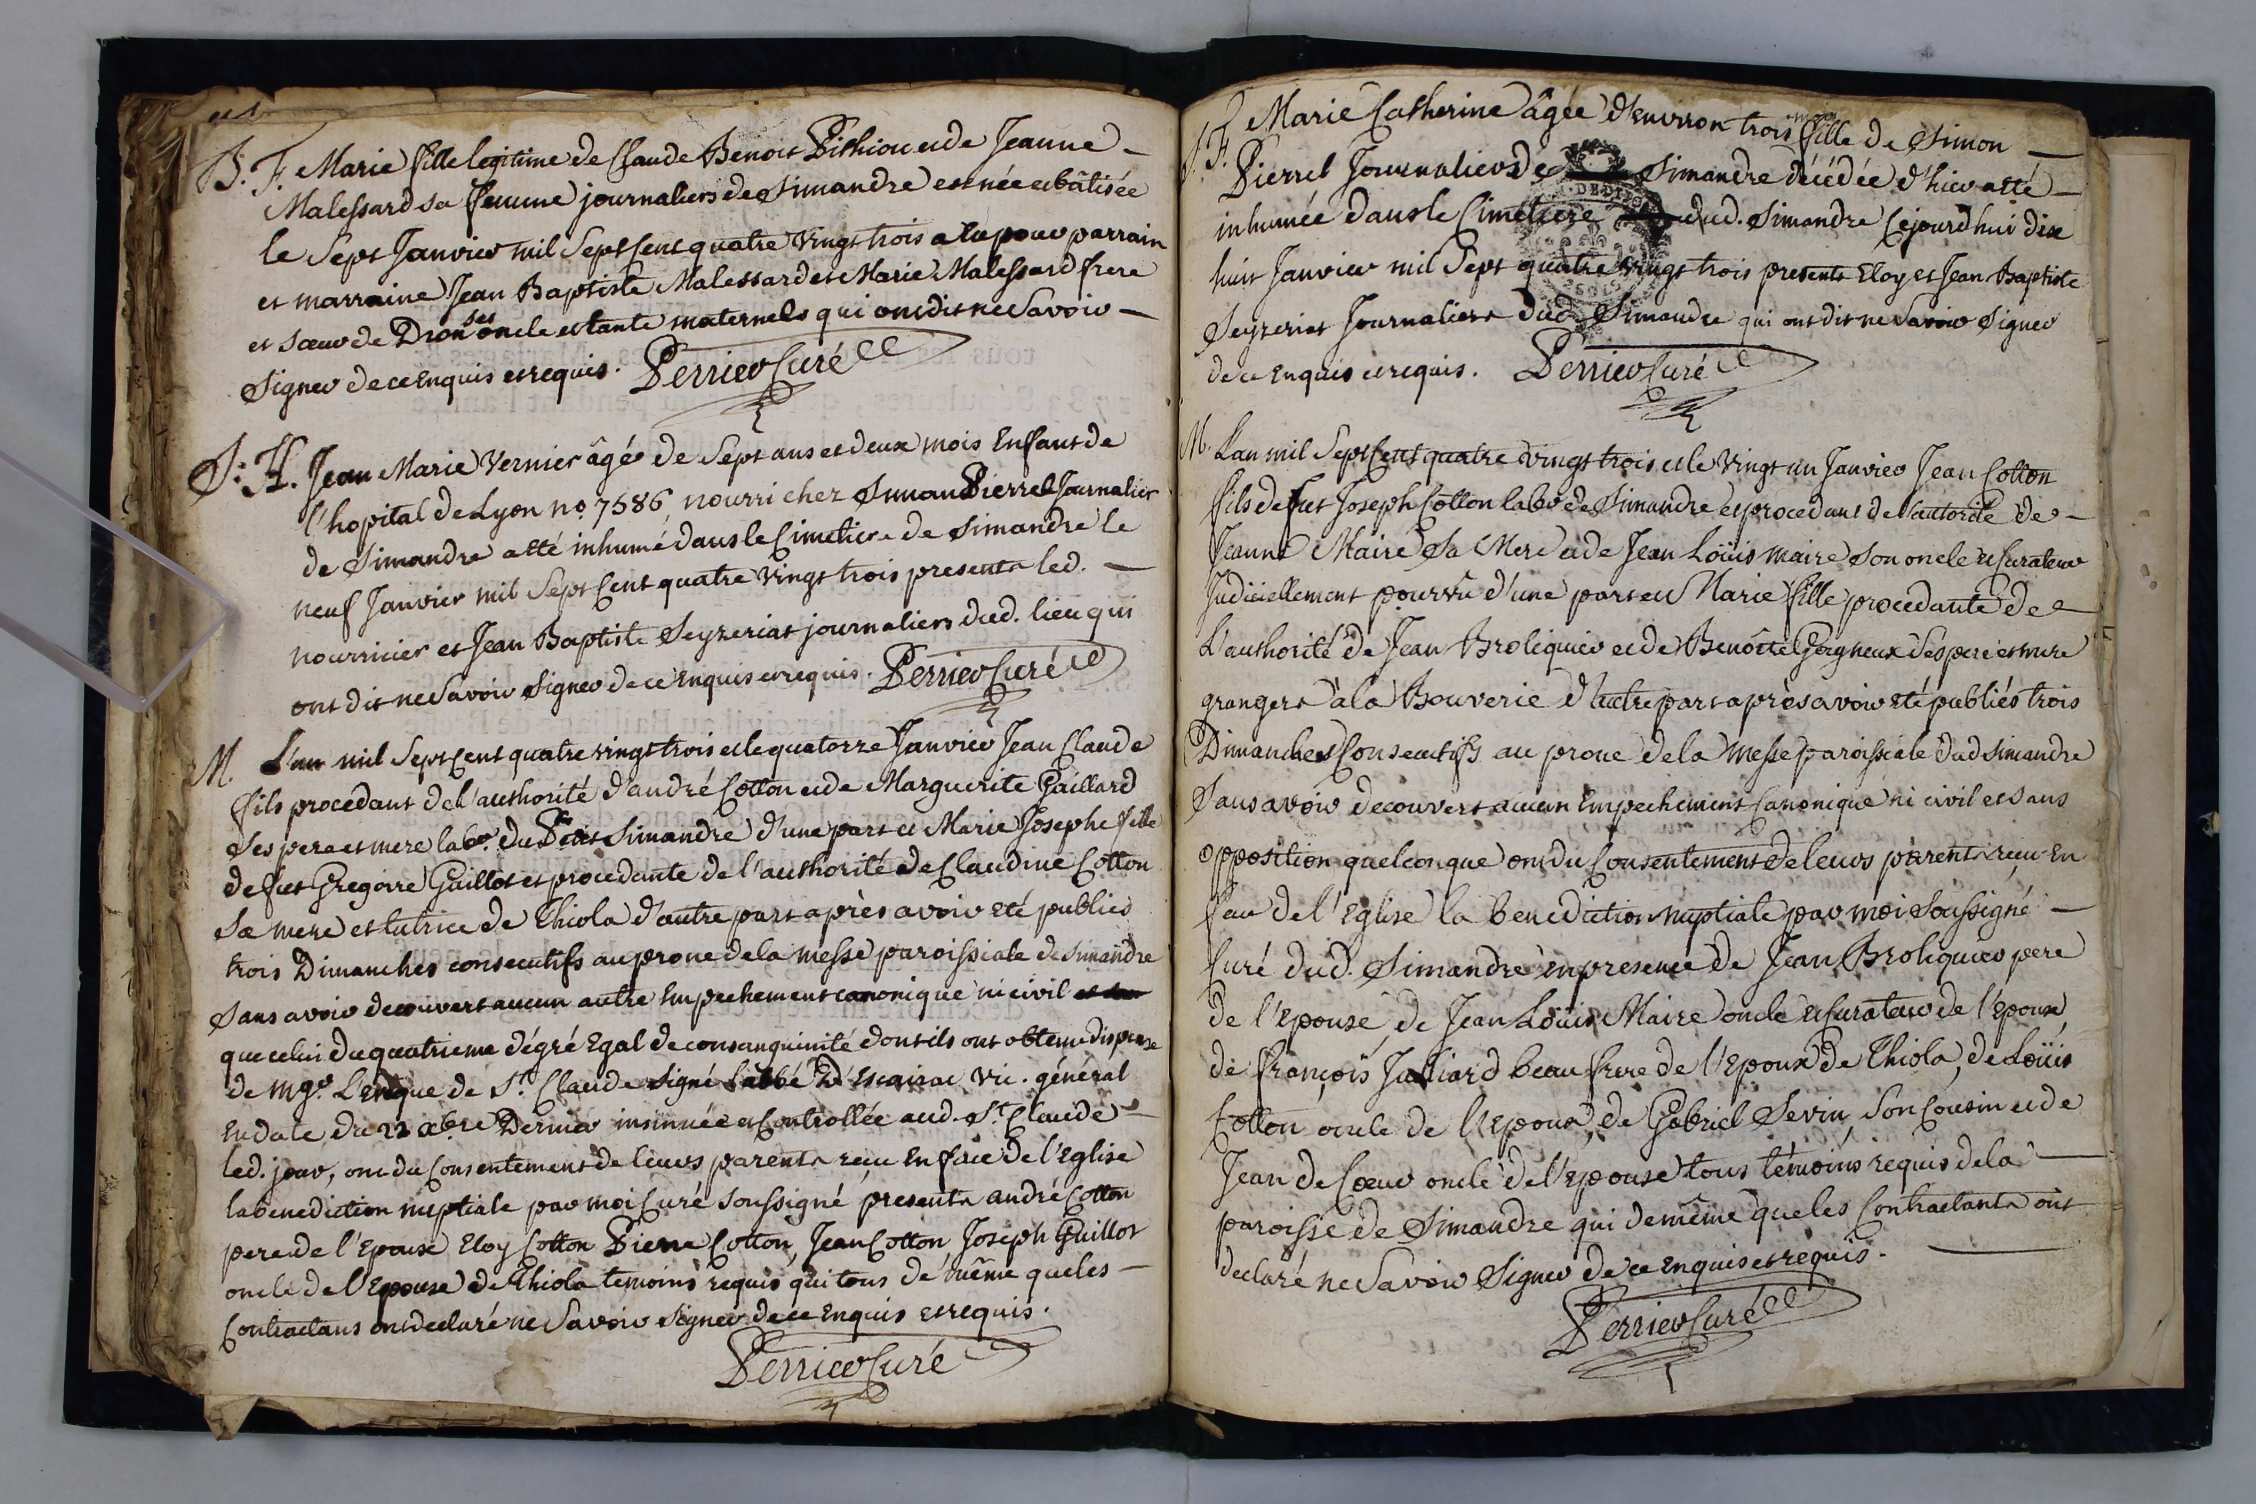 B. F. Marie fille legitime de Claude Benoit Pithiou et de Jeanne
Malessard sa femme journaliers de Simandre est née et bâtisée
le Sept Janvier mil Sept Cent quatre vingt trois a eu pour parrain
et marraine Jean Baptiste Malessard et Marie Malessard frere
et sœur de Dron ses oncle et tante maternels qui ont dit ne Savoir
Signer de ce Enquis et requis. Perrier Curé
S. H. Jean Marie Vernier âgé de Sept ans et deux mois Enfant de
l'hopital de Lyon no. 7586 nourri chez Simon Pierrel Journalier
de Simandre a été inhumé dans le Cimetiere de Simandre le
neuf Janvier mil Sept Cent quatre vingt trois presents led.
nourricier et Jean Baptiste Seyzeriat journaliers dud. lieu qui
ont dit ne Savoir Signer de ce Enquis et requis. Perrier Curé
M. L'an mil Sept Cent quatre vingt trois et le quatorze Janvier Jean Claude
fils procedant de l'authorité d'andré Cotton et de Marguerite Gaillard
Ses pere et mere labr. du Petit Simandre d'une part et Marie Josephe fille
de fut Gregoire Guillot et procedante de l'authorité de Claudine Cotton
Sa mere et tutrice de Thiola d'autre part après avoir eté publiés
trois Dimanches consecutifs au prone de la messe paroissiale de Simandre
Sans avoir decouvert aucun autre Empechement canonique ni civil
que celui du quatrieme dégré Egal de consanguinité dont ils ont obtenu dispense
de mgr. L'Eveque de St. Claude signé l'abbé D'escairac vic. général
En date du 22 xbre Dernier insinuée et Controllée aud. St. Claude
led. jour, ont du Consentement de leurs parents reçu En face de l'Eglise
la benediction nuptiale par moi Curé Soussigné, presents andré Cotton
pere de l'Epoux Eloy Cotton Pierre Cotton, Jean Cotton, Joseph Guillot
oncle de l'Epouse de Thiola temoins requis qui tous de même que les
Contractans ont declaré ne Savoir Signer de ce Enquis et requis.
Perrier Curé
S. F. Marie Catherine âgée d'environ trois mois fille de Simon
Pierrel Journaliers de Simandre décédée d'hier a été
inhumée dans le Cimetiere dud. Simandre Cejourd'hui dix
huit Janvier mil Sept quatre vingt trois presents Eloy et Jean Baptiste
Seyzeriat Journaliers dud. Simandre qui ont dit ne Savoir Signer
de ce Enquis et requis. Perrier Curé
M. L'an mil Sept Cent quatre vingt trois et le vingt un Janvier Jean Cotton
fils de fut Joseph Cotton labr. de Simandre et procedant de l'autorité de
Jeanne Maire Sa Mere et de Jean Loüis maire Son oncle et Curateur
Judiciellement pourvû d'une part et Marie fille procedante de
L'authorité de Jean Broliquier et de Benoîte Gorgneux Ses pere et mere
grangers à la Bouverie d'autre part après avoir eté publiés trois
Dimanches Consecutifs au prone de la messe paroissiale dud Simandre
Sans avoir decouvert aucun Empechement Canonique ni civil et Sans
opposition quelconque ont du Consentement de leurs parents reçu En
face de l'Eglise la benediction nuptiale par moi Soussigné
Curé dud. Simandre en presence de Jean Broliquier pere
de l'Epouse, de Jean Loüis Maire oncle et Curateur de l'Epoux,
de françois Julliard beau frere de l'Epoux de Thiola, de Loüis
Cotton oncle de l'Epoux, de Gabriel Sevin, Son Cousin et de
Jean de Cœur oncle de l'Epouse tous témoins requis de la
paroisse de Simandre qui de même que les Contractants ont
declaré ne Savoir Signer de ce Enquis et requis.
Perrier Curé